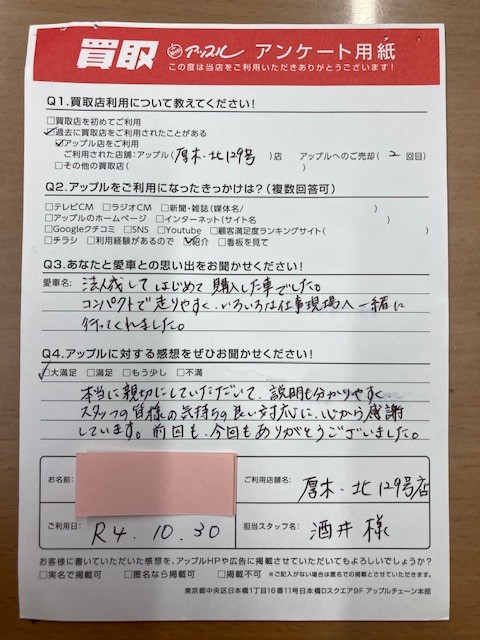 買取 アップル アンケート用紙
この度は当店をご利用いただきありがとうございます!
Q1.買取店利用について教えてください!
□買取店を初めてご利用
☑過去に買取店をご利用されたことがある
☑アップル店をご利用
ご利用された店舗:アップル(厚木・北129号)店 アップルへのご売却(2回目)
□その他の買取店( )
Q2.アップルをご利用になったきっかけは?(複数回答可)
□テレビCM □ラジオCM □新聞・雑誌(媒体名/ )
□アップルのホームページ □インターネット(サイト名 )
□Googleクチコミ □SNS □Youtube □顧客満足度ランキングサイト( )
□チラシ □利用経験があるので ☑紹介 □看板を見て
Q3.あなたと愛車との思い出をお聞かせください!
愛車名: 法人成してはじめて購入した車でした。
コンパクトで走りやすく、いろいろな仕事現場へ一緒に
行ってくれました。
Q4.アップルに対する感想をぜひお聞かせください!
☑大満足 □満足 □もう少し □不満
本当に親切にしていただいて、説明も分かりやすく
スタッフの皆様の気持ちの良い対応に、心から感謝
しています。前回も、今回もありがとうございました。
お名前: ご利用店舗名: 厚木・北129号店
ご利用日: R4.10.30 担当スタッフ名: 酒井様
お客様に書いていただいた感想を、アップルHPや広告に掲載させていただいてもよろしいでしょうか?
□実名で掲載可 □匿名なら掲載可 □掲載不可 ※ご記入がない場合は匿名での掲載とさせていただきます。
東京都中央区日本橋1丁目16番11号日本橋Dスクエア9F アップルチェーン本部